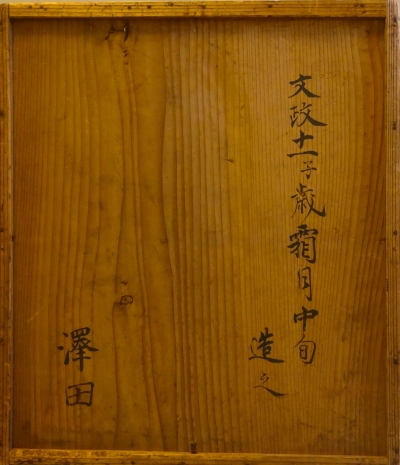 文政十一子歳霜月中旬
造之
澤田